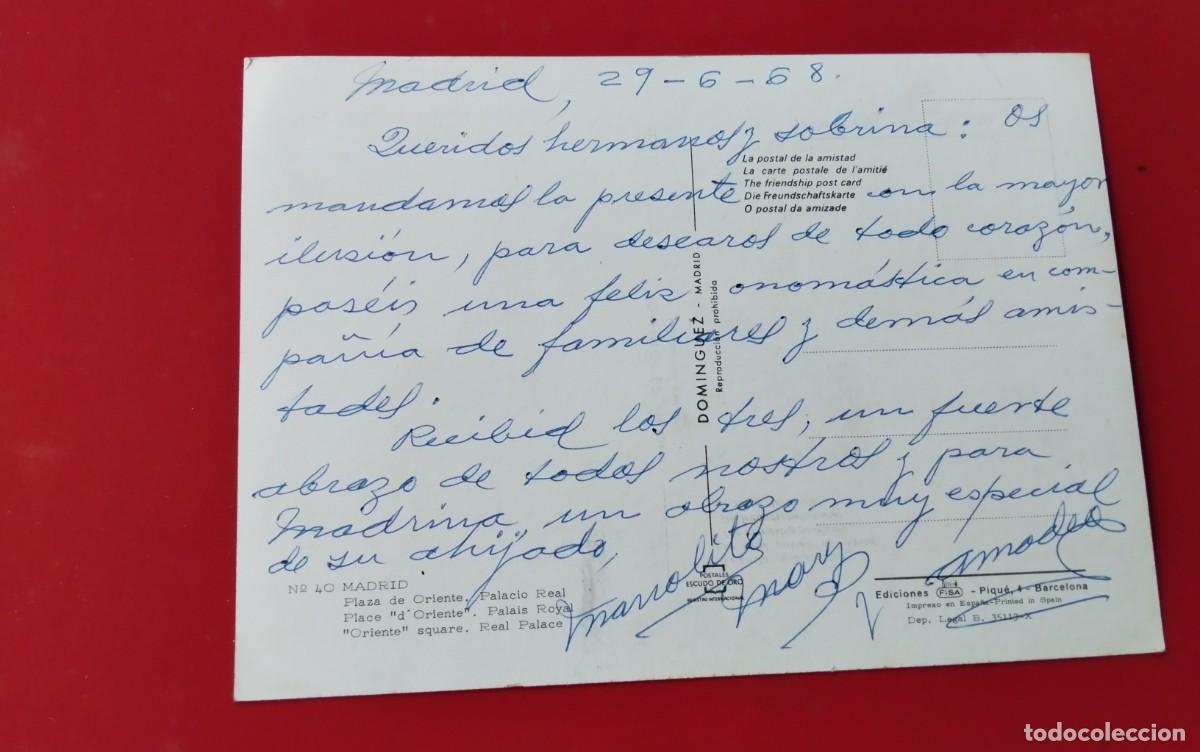 Madrid, 29-6-68.
Queridos hermanos y sobrina: os
mandamos la presente con la mayor
ilusión, para desearos de todo corazón,
paséis una feliz onomástica en com-
pañía de familiares y demás amis-
tades.
Recibid los tres, un fuerte
abrazo de todos nostros y para
Madrina, un abrazo muy especial
de su ahijado,
Manolito Mary y Amadeo
La postal de la amistad
La carte postale de l'amitié
The friendship post card
Die Freundschaftskarte
O postal da amizade
DOMINGUEZ - MADRID
Reproducción prohibida
POSTALES
ESCUDO DE ORO
Nº 40 MADRID
Plaza de Oriente. Palacio Real
Place "d'Oriente". Palais Royal
"Oriente" square. Real Palace
Ediciones FISA - Piqué, 4 - Barcelona
Impreso en España-Printed in Spain
Dep. Legal B. 35113-X
todocoleccion